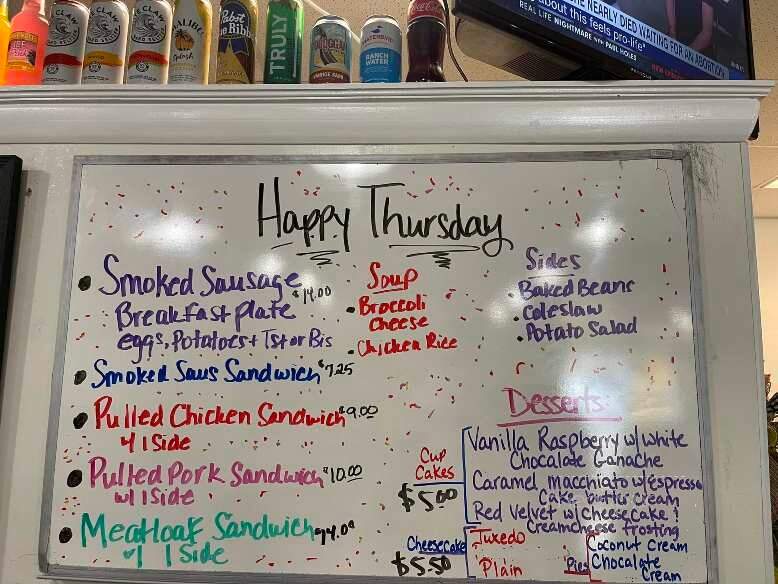 Claw
Claw
Claw
MALIBU
Splash
Pabst
Blue Ribbon
TRULY
RANCH
WATER
NEARLY DIED WAITING FOR AN ABORTION
about this feels pro-life"
REAL LIFE NIGHTMARE with PAUL HOLES
Happy Thursday
Smoked Sausage $14.00
Breakfast Plate
eggs, Potatoes + Tst or Bis
Smoked Saus Sandwich $7.25
Pulled Chicken Sandwich $9.00
w/ 1 Side
Pulled Pork Sandwich $10.00
w/ 1 Side
Meatloaf Sandwich $14.00
w/ 1 Side
Soup
Broccoli
Cheese
Chicken Rice
Sides
Baked Beans
Coleslaw
Potato Salad
Desserts
Cup
Cakes
$5.00
Vanilla Raspberry w/ white
Chocalate Ganache
Caramel macchiato w/ Espresso
Cake butter cream
Red Velvet w/ Cheesecake &
Creamcheese frosting
Cheesecake
$5.50
Tuxedo
Plain
Pies
Coconut Cream
Chocolate
Cream